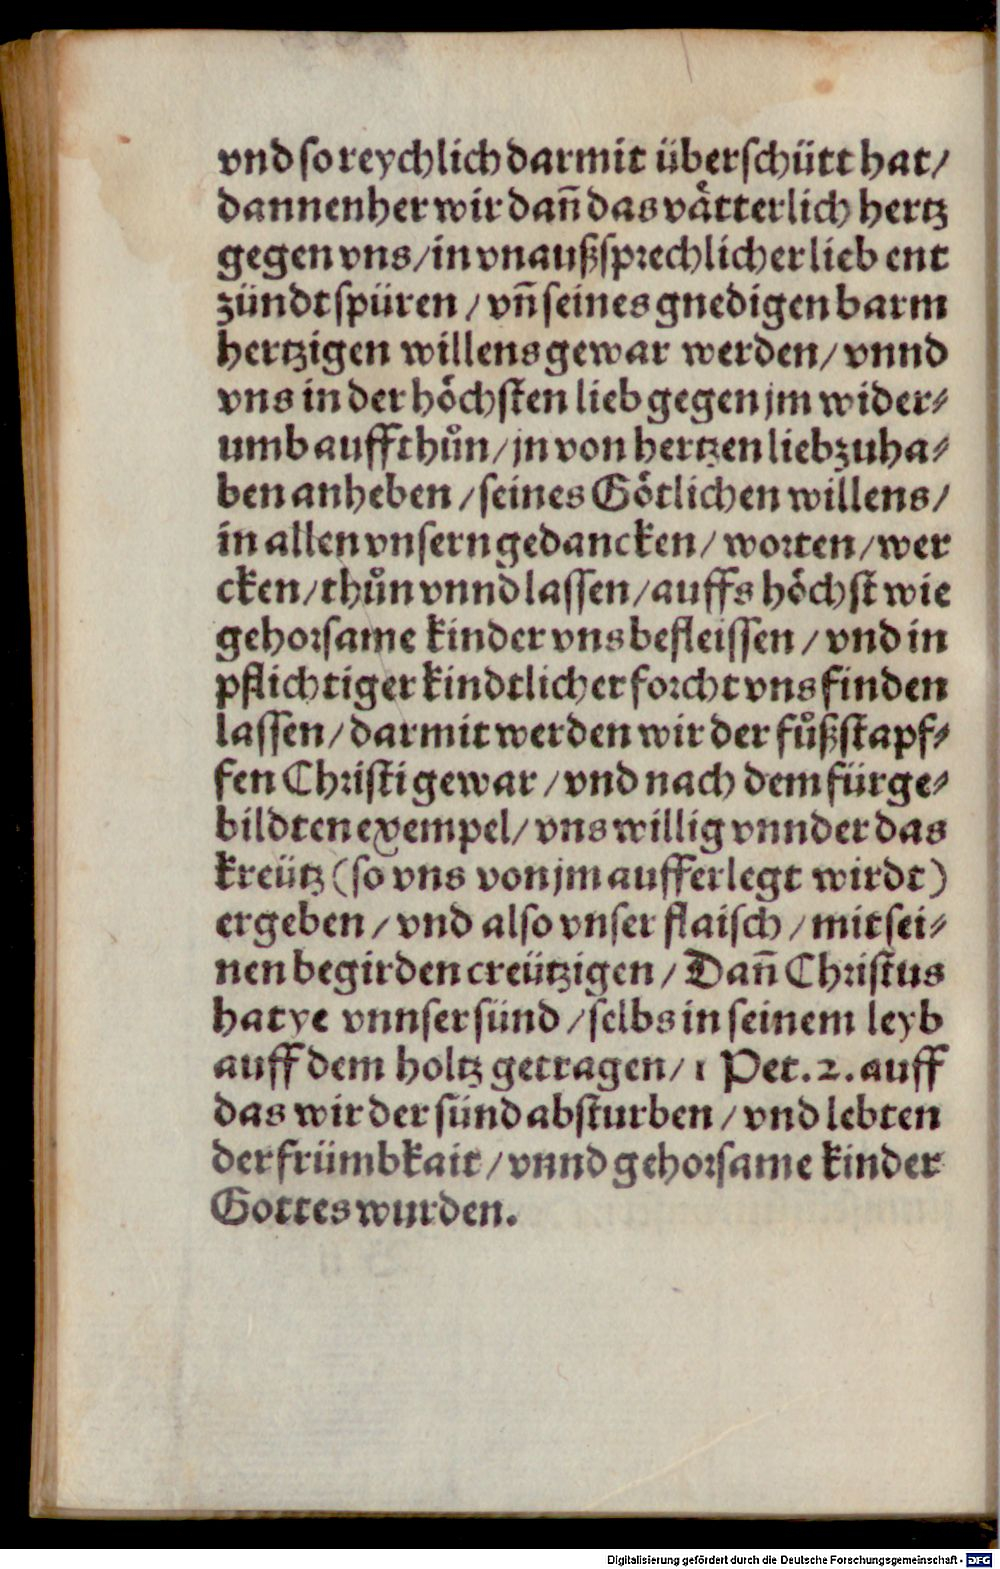 vnd so reychlich darmit überschütt hat/
dannenher wir dañ das vätterlich hertz
gegen vns/in vnaußsprechlicher lieb ent
zündt spüren/vñ seines gnedigen barm
hertzigen willens gewar werden/vnnd
vns in der höchsten lieb gegen jm wider⸗
umb auffthůn/jn von hertzen lieb zuha⸗
ben anheben/seines Götlichen willens/
in allen vnsern gedancken/worten/wer
cken/thůn vnnd lassen/auffs höchst wie
gehorsame kinder vns befleissen/vnd in
pflichtiger kindtlicher forcht vns finden
lassen/darmit werden wir der fůßstapf⸗
fen Christi gewar/vnd nach dem fürge⸗
bildten exempel/vns willig vnnder das
kreütz (so vns von jm aufferlegt wirdt)
ergeben/vnd also vnser flaisch/mit sei⸗
nen begirden creützigen/Dañ Christus
hat ye vnnser sünd/selbs in seinem leyb
auff dem holtz getragen/1 Pet.2. auff
das wir der sünd absturben/vnd lebten
der frümbkait/vnnd gehorsame kinder
Gottes wurden.
Digitalisierung gefördert durch die Deutsche Forschungsgemeinschaft - DFG